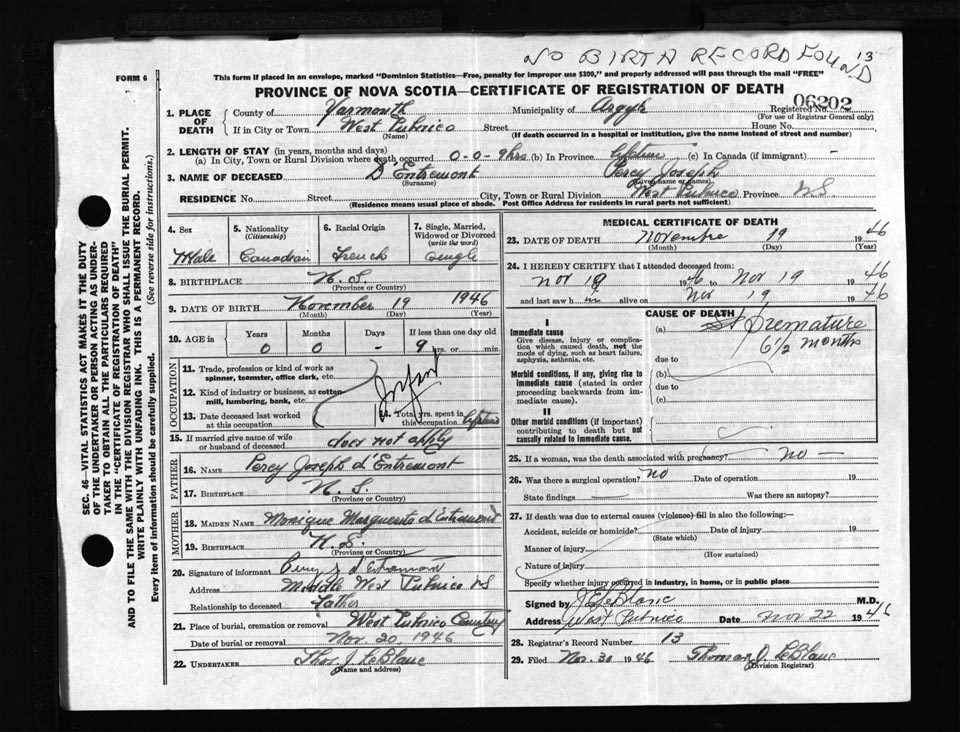 NO BIRTH RECORD FOUND
13
FORM 6
This form if placed in an envelope, marked "Dominion Statistics—Free, penalty for improper use $300," and properly addressed will pass through the mail "FREE"
PROVINCE OF NOVA SCOTIA—CERTIFICATE OF REGISTRATION OF DEATH
06202
1. PLACE OF DEATH
County of Yarmouth Municipality of Argyle Registered No.
(For use of Registrar General only)
If in City or Town West Pubnico Street House No.
(Name) (If death occurred in a hospital or institution, give the name instead of street and number)
2. LENGTH OF STAY (in years, months and days)
(a) In City, Town or Rural Division where death occurred 0-0-9 hrs (b) In Province Lifetime (c) In Canada (if immigrant) -
3. NAME OF DECEASED D'Entremont Percy Joseph
(Surname) (Given name or names)
RESIDENCE No. Street City, Town or Rural Division West Pubnico Province N.S.
(Residence means usual place of abode. Post Office Address for residents in rural parts not sufficient)
4. Sex
Male
5. Nationality
(Citizenship)
Canadian
6. Racial Origin
French
7. Single, Married, Widowed or Divorced
(write the word)
Single
8. BIRTHPLACE N.S.
(Province or Country)
9. DATE OF BIRTH November 19 1946
(Month) (Day) (Year)
10. AGE in
Years Months Days If less than one day old
0 0 - 9 hrs. or min.
OCCUPATION
11. Trade, profession or kind of work as
spinner, teamster, office clerk, etc.
12. Kind of industry or business, as cotton
mill, lumbering, bank, etc.
13. Date deceased last worked
at this occupation
14. Total yrs. spent in
this occupation
15. If married give name of wife
or husband of deceased does not apply
FATHER
16. NAME Percy Joseph d'Entremont
17. BIRTHPLACE N.S.
(Province or Country)
MOTHER
18. MAIDEN NAME Monique Marguerite d'Entremont
19. BIRTHPLACE N.S.
(Province or Country)
20. Signature of informant Percy J. d'Entremont
Address Middle West Pubnico NS
Relationship to deceased Father
21. Place of burial, cremation or removal West Pubnico Cemetery
Date of burial or removal Nov. 20, 1946
22. UNDERTAKER Thos. J. LeBlanc
(Name and address)
MEDICAL CERTIFICATE OF DEATH
23. DATE OF DEATH Novembre 19 1946
(Month) (Day) (Year)
24. I HEREBY CERTIFY that I attended deceased from:
Nov 19 1946 to Nov 19 1946
and last saw h im alive on Nov 19 1946
CAUSE OF DEATH
I
Immediate cause
Give disease, injury or complica-
tion which caused death, not the
mode of dying, such as heart failure,
asphyxia, asthenia, etc.
(a) Premature
6 1/2 months
due to
Morbid conditions, if any, giving rise to
immediate cause (stated in order
proceeding backwards from im-
mediate cause).
(b)
due to
(c)
II
Other morbid conditions (if important)
contributing to death but not
causally related to immediate cause.
25. If a woman, was the death associated with pregnancy? no —
26. Was there a surgical operation? no Date of operation 19
State findings — Was there an autopsy?
27. If death was due to external causes (violence) fill in also the following:—
Accident, suicide or homicide? Date of injury 19
(State which)
Manner of injury
(How sustained)
Nature of injury
Specify whether injury occurred in industry, in home, or in public place
Signed by J E LeBlanc M.D.
Address West Pubnico Date Nov 22 1946
28. Registrar's Record Number 13
29. Filed Nov. 30 1946 Thomas J. LeBlanc
(Division Registrar)
SEC. 46—VITAL STATISTICS ACT MAKES IT THE DUTY
OF THE UNDERTAKER OR PERSON ACTING AS UNDER-
TAKER TO OBTAIN ALL THE PARTICULARS REQUIRED
IN THE "CERTIFICATE OF REGISTRATION OF DEATH"
AND TO FILE THE SAME WITH THE DIVISION REGISTRAR WHO SHALL ISSUE THE BURIAL PERMIT.
WRITE PLAINLY WITH UNFADING INK. THIS IS A PERMANENT RECORD.
Every item of information should be carefully supplied. (See reverse side for instructions.)